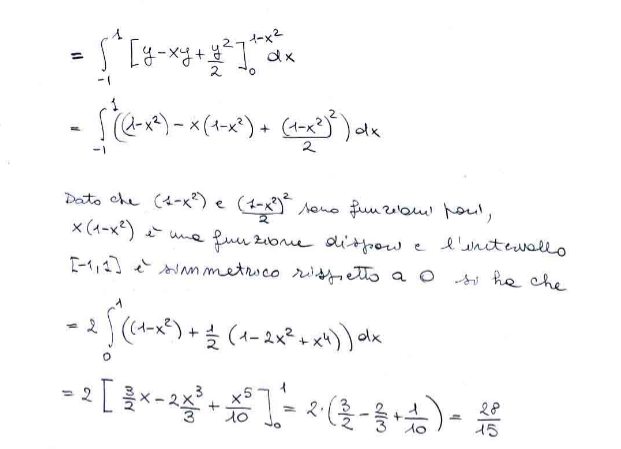 = ∫_{-1}^{1} [y-xy+y²/2]_0^{1-x²} dx
= ∫_{-1}^{1} ((1-x²) - x(1-x²) + (1-x²)²/2) dx
Dato che (1-x²) e (1-x²)²/2 sono funzioni pari,
x(1-x²) è una funzione dispari e l'intervallo
[-1,1] è simmetrico rispetto a 0 si ha che
= 2 ∫_0^1 ((1-x²) + 1/2 (1-2x²+x⁴)) dx
= 2 [3/2 x - 2x³/3 + x⁵/10]_0^1 = 2·(3/2 - 2/3 + 1/10) = 28/15